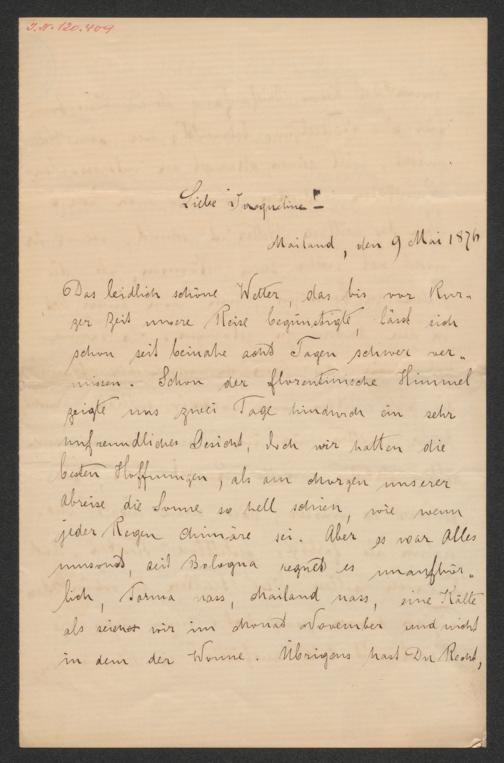 J.N. 120.409
Liebe Jacqueline!
Mailand, den 9 Mai 1876
Das leidlich schöne Wetter, das bis vor Kur-
zer Zeit unsere Reise begünstigte, lässt sich
schon seit beinahe acht Tagen schwer ver-
missen. Schon der florentinische Himmel
zeigte uns zwei Tage hindurch ein sehr
unfreundliches Gesicht, doch wir hatten die
besten Hoffnungen, als am Morgen unserer
Abreise die Sonne so hell schien, wie wenn
jeder Regen Chimäre sei. Aber es war Alles
umsonst, seit Bologna regnet es unaufhör-
lich, Parma nass, Mailand nass, eine Kälte
als seien wir im Monat November und nicht
in dem der Wonne. Übrigens hast Du Recht,